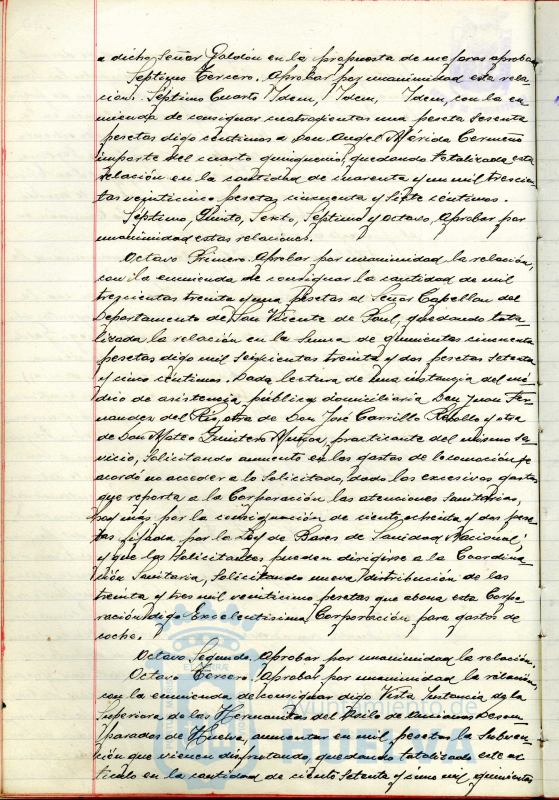 a dicho Señor Galdón en la propuesta de mejoras aproban
Septimo Tercero. Aprobar por unanimidad esta rela-
ción. Séptimo Cuarto Idem, Idem, Idem, con la en-
mienda de consignar cuatrocientas una peseta sesenta
pesetas digo centimos a Don Angel Mérida Cermeño
importe del cuarto quinquenio, quedando totalizada esta
relación en la cantidad de cuarenta y un mil trescien-
tas veinticinco pesetas cincuenta y siete centimos.
Septimo, Quinto, Sexto, Septimo y octavo, Aprobar por
unanimidad estas relaciones.
Octavo Primero. Aprobar por unanimidad la relación,
con la enmienda de consignar la cantidad de mil
trescientas treinta y una pesetas al Señor Capellan del
Departamento de San Vicente de Paul, quedando tota-
lizada la relación en la suma de quinientas cincuenta
pesetas digo mil seiscientas treinta y dos pesetas setenta
y cinco céntimos. Dada lectura de una instancia del mé-
dico de asistencia pública domiciliaria Don Juan Fer-
nandez del Rio, otra de Don José Carrillo Rebollo y otra
de Don Mateo Muñoz, practicante del mismo ser-
vicio, solicitando aumento en los gastos de locomoción, se
acordó no acceder a lo solicitado, dado los excesivos gastos
que reporta a la Corporación las atenciones sanitarias,
hay más por la consignación de ciento ochenta y dos pese-
tas fijada por la Ley de Bases de Sanidad Nacional;
y que los solicitantes pueden dirigirse a la Coordina-
ción Sanitaria, solicitando nueva distribución de las
treinta y tres mil veinticinco pesetas que abona esta Corpo-
ración digo Excelentisima Corporación para gastos de
coche.
Octavo Segundo. Aprobar por unanimidad la relación.
Octavo Tercero. Aprobar por unanimidad la
con la enmienda de consignar digo Vista Instancia de la
Superiora de las Hermanitas del Asilo de Ancianos Desam-
parados de Huelva, aumentar en mil pesetas la subven-
ción que vienen disfrutando, quedando totalizado este ar-
ticulo en la cantidad de ciento setenta y cinco mil quinientas
Ayuntamiento de
HUELVA